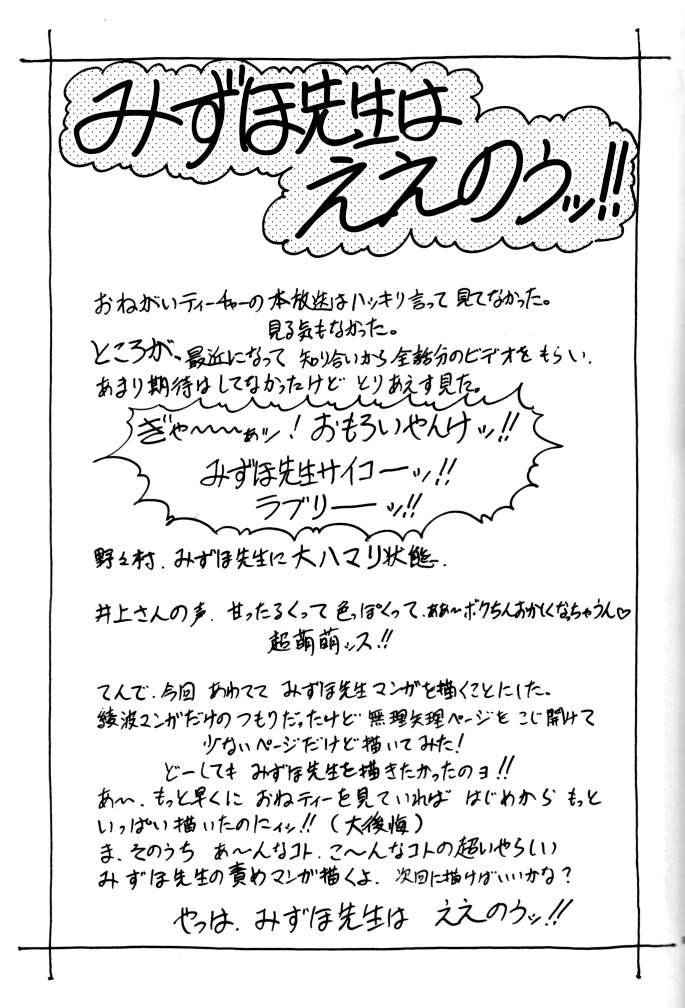 みずほ先生は
ええのうッ!!
おねがいティーチャーの本放送はハッキリ言って見てなかった。
見る気もなかった。
ところが、最近になって知り合いから全話分のビデオをもらい、
あまり期待はしてなかったけどとりあえす見た。
ぎゃ〜〜〜ぁッ!おもろいやんけッ!!
みずほ先生サイコーッ!!
ラブリーーッ!!
野々村、みずほ先生に大ハマリ状態。
井上さんの声、甘ったるくって色っぽくって、ああ〜ボクちんおかしくなっちゃうん♡
超萌萌ッス!!
てんで、今回あわててみずほ先生マンガを描くことにした。
綾波マンガだけのつもりだったけど無理矢理ページをこじ開けて
少ないページだけど描いてみた!
どーしてもみずほ先生を描きたかったのヨ!!
あ〜、もっと早くにおねティーを見ていればはじめからもっと
いっぱい描いたのにィッ!!(大後悔)
ま、そのうちあ〜んなコト、こ〜んなコトの超いやらしい
みずほ先生の責めマンガ描くよ、次回に描けばいいかな?
やっは、みずほ先生はええのウッ!!